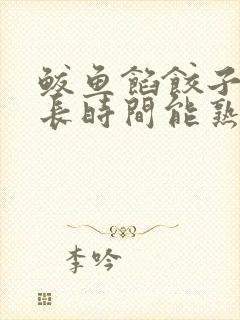 鲅鱼餡餃子
長時間能熟
李吟